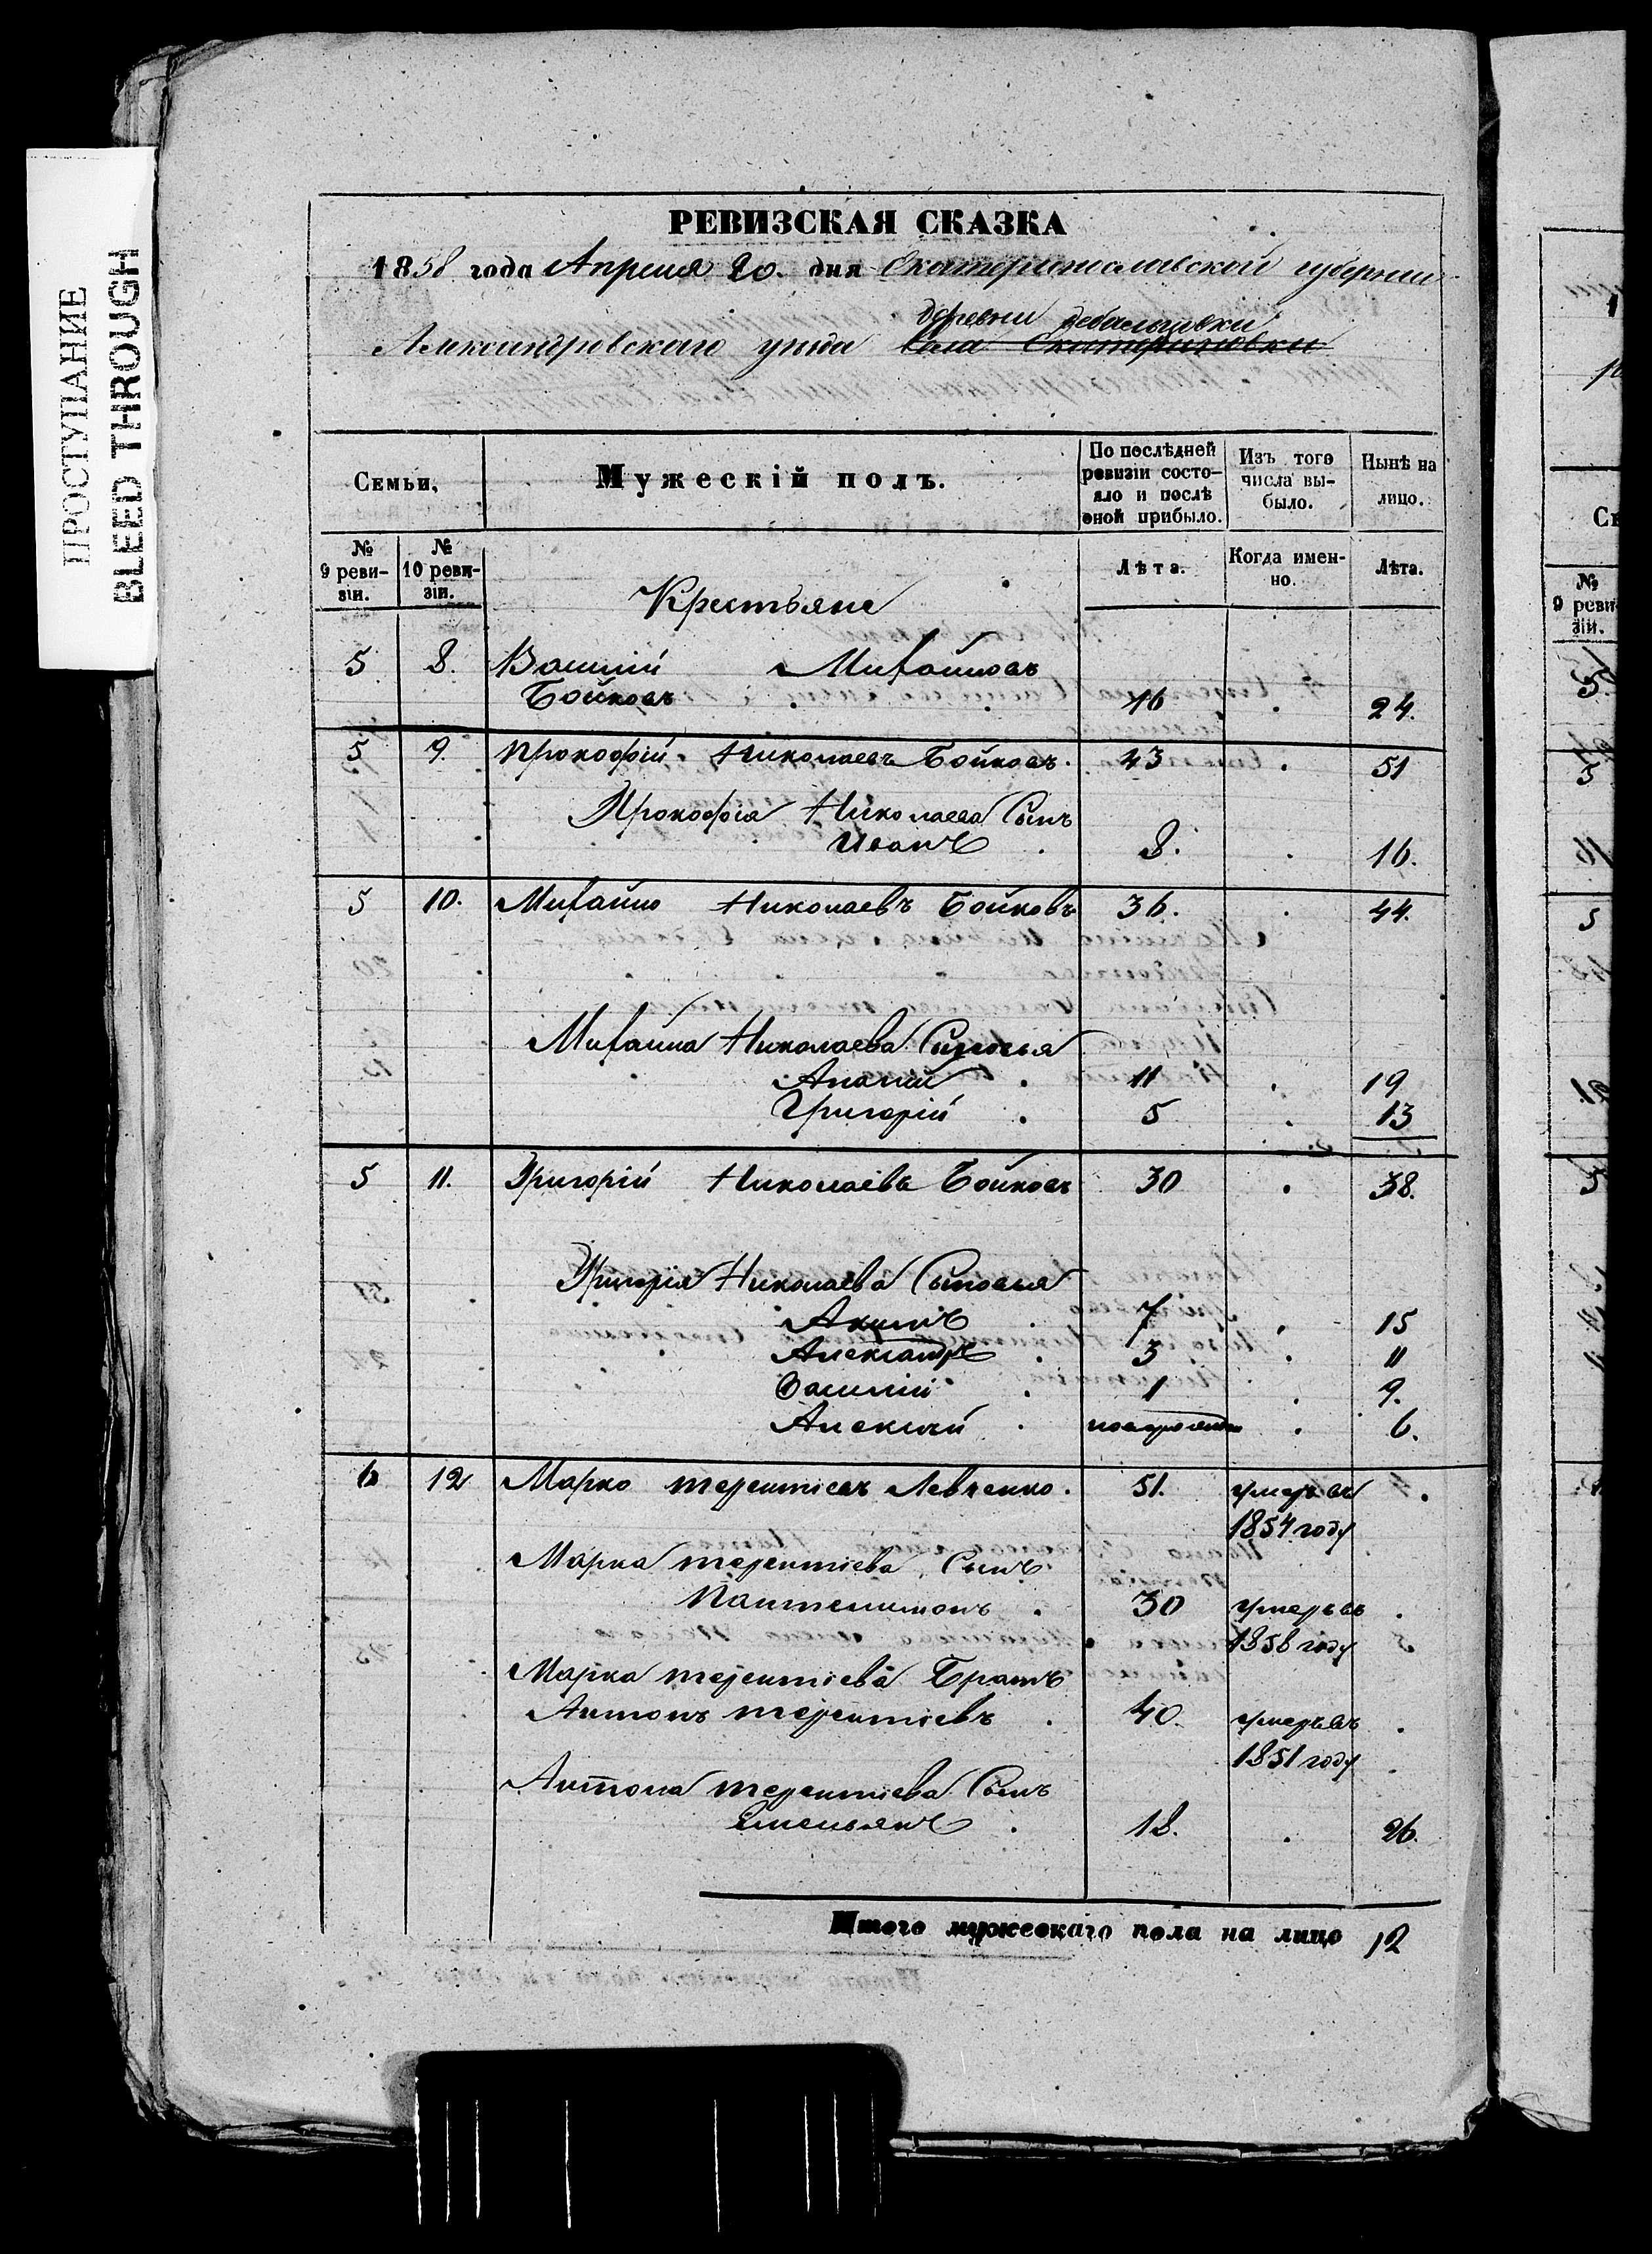 ПРОСТУПАНИЕ
BLEED THROUGH
РЕВИЗСКАЯ СКАЗКА
1858 года Апреля 20. дня Екатеринославской губернии
деревни Дебальцовки
Александровскаго уезда Села Екатериновки
Семьи,
Мужескій полъ.
По послѣдней ревизіи состо-
яло и послѣ
оной прибыло.
Изъ того
числа вы-
было.
Нынѣ на
лицо.
№
9 реви-
зіи.
№
10 реви-
зіи.
Лѣта.
Когда имен-
но.
Лѣта.
Крестьяне
5 8. Василій Михайловъ
Бойковъ 16 . 24.
5 9. Прокофій Николаевъ Бойковъ. 43 . 51
Прокофія Николаева Сынъ
Иванъ . 8. . 16.
5 10. Михайло Николаевъ Бойковъ 36. . 44.
Михайла Николаева Сыновья
Ананий . 11 . 19
Григорій . 5 . 13
5 11. Григорій Николаевъ Бойковъ 30 . 38.
Григорія Николаева Сыновья
Акимъ . 7 . 15
Александръ . 3 . 11
Василій . 1 . 9.
Алексѣй . . 6.
6 12 Марко терентіевъ Левченко. 51. умеръ въ .
1854 году
Марка терентіева Сынъ
Пантелимонъ . 30 умеръ въ .
1858 году
Марка терентіева Братъ
Антонъ терентіевъ . 40. умеръ въ .
1851 году
Антона терентіева Сынъ
Емельянъ . 18. . 26.
Итого мужескаго пола на лицо 12